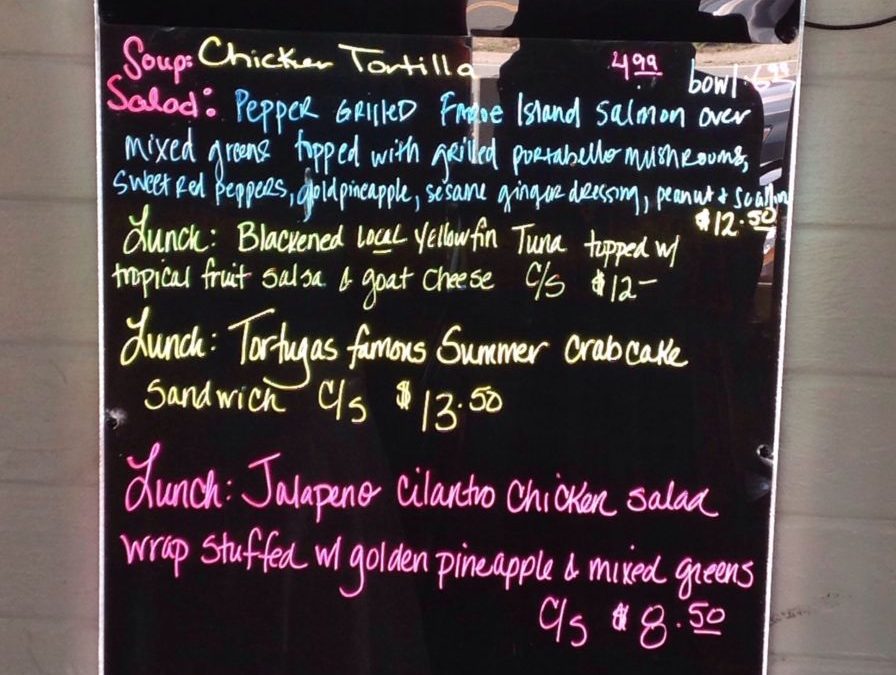 Soup: Chicken Tortilla 4.99 bowl
Salad: Pepper Grilled Faroe Island Salmon over
mixed greens topped with grilled portabello mushrooms,
sweet red peppers, gold pineapple, sesame ginger dressing, peanut & scallion
$12.50
Lunch: Blackened local Yellowfin Tuna topped w/
tropical fruit salsa & goat cheese C/S $12-
Lunch: Tortugas famous Summer Crab cake
Sandwich C/S $13.50
Lunch: Jalapeno Cilantro Chicken salad
wrap stuffed w/ golden pineapple & mixed greens
C/S $8.50